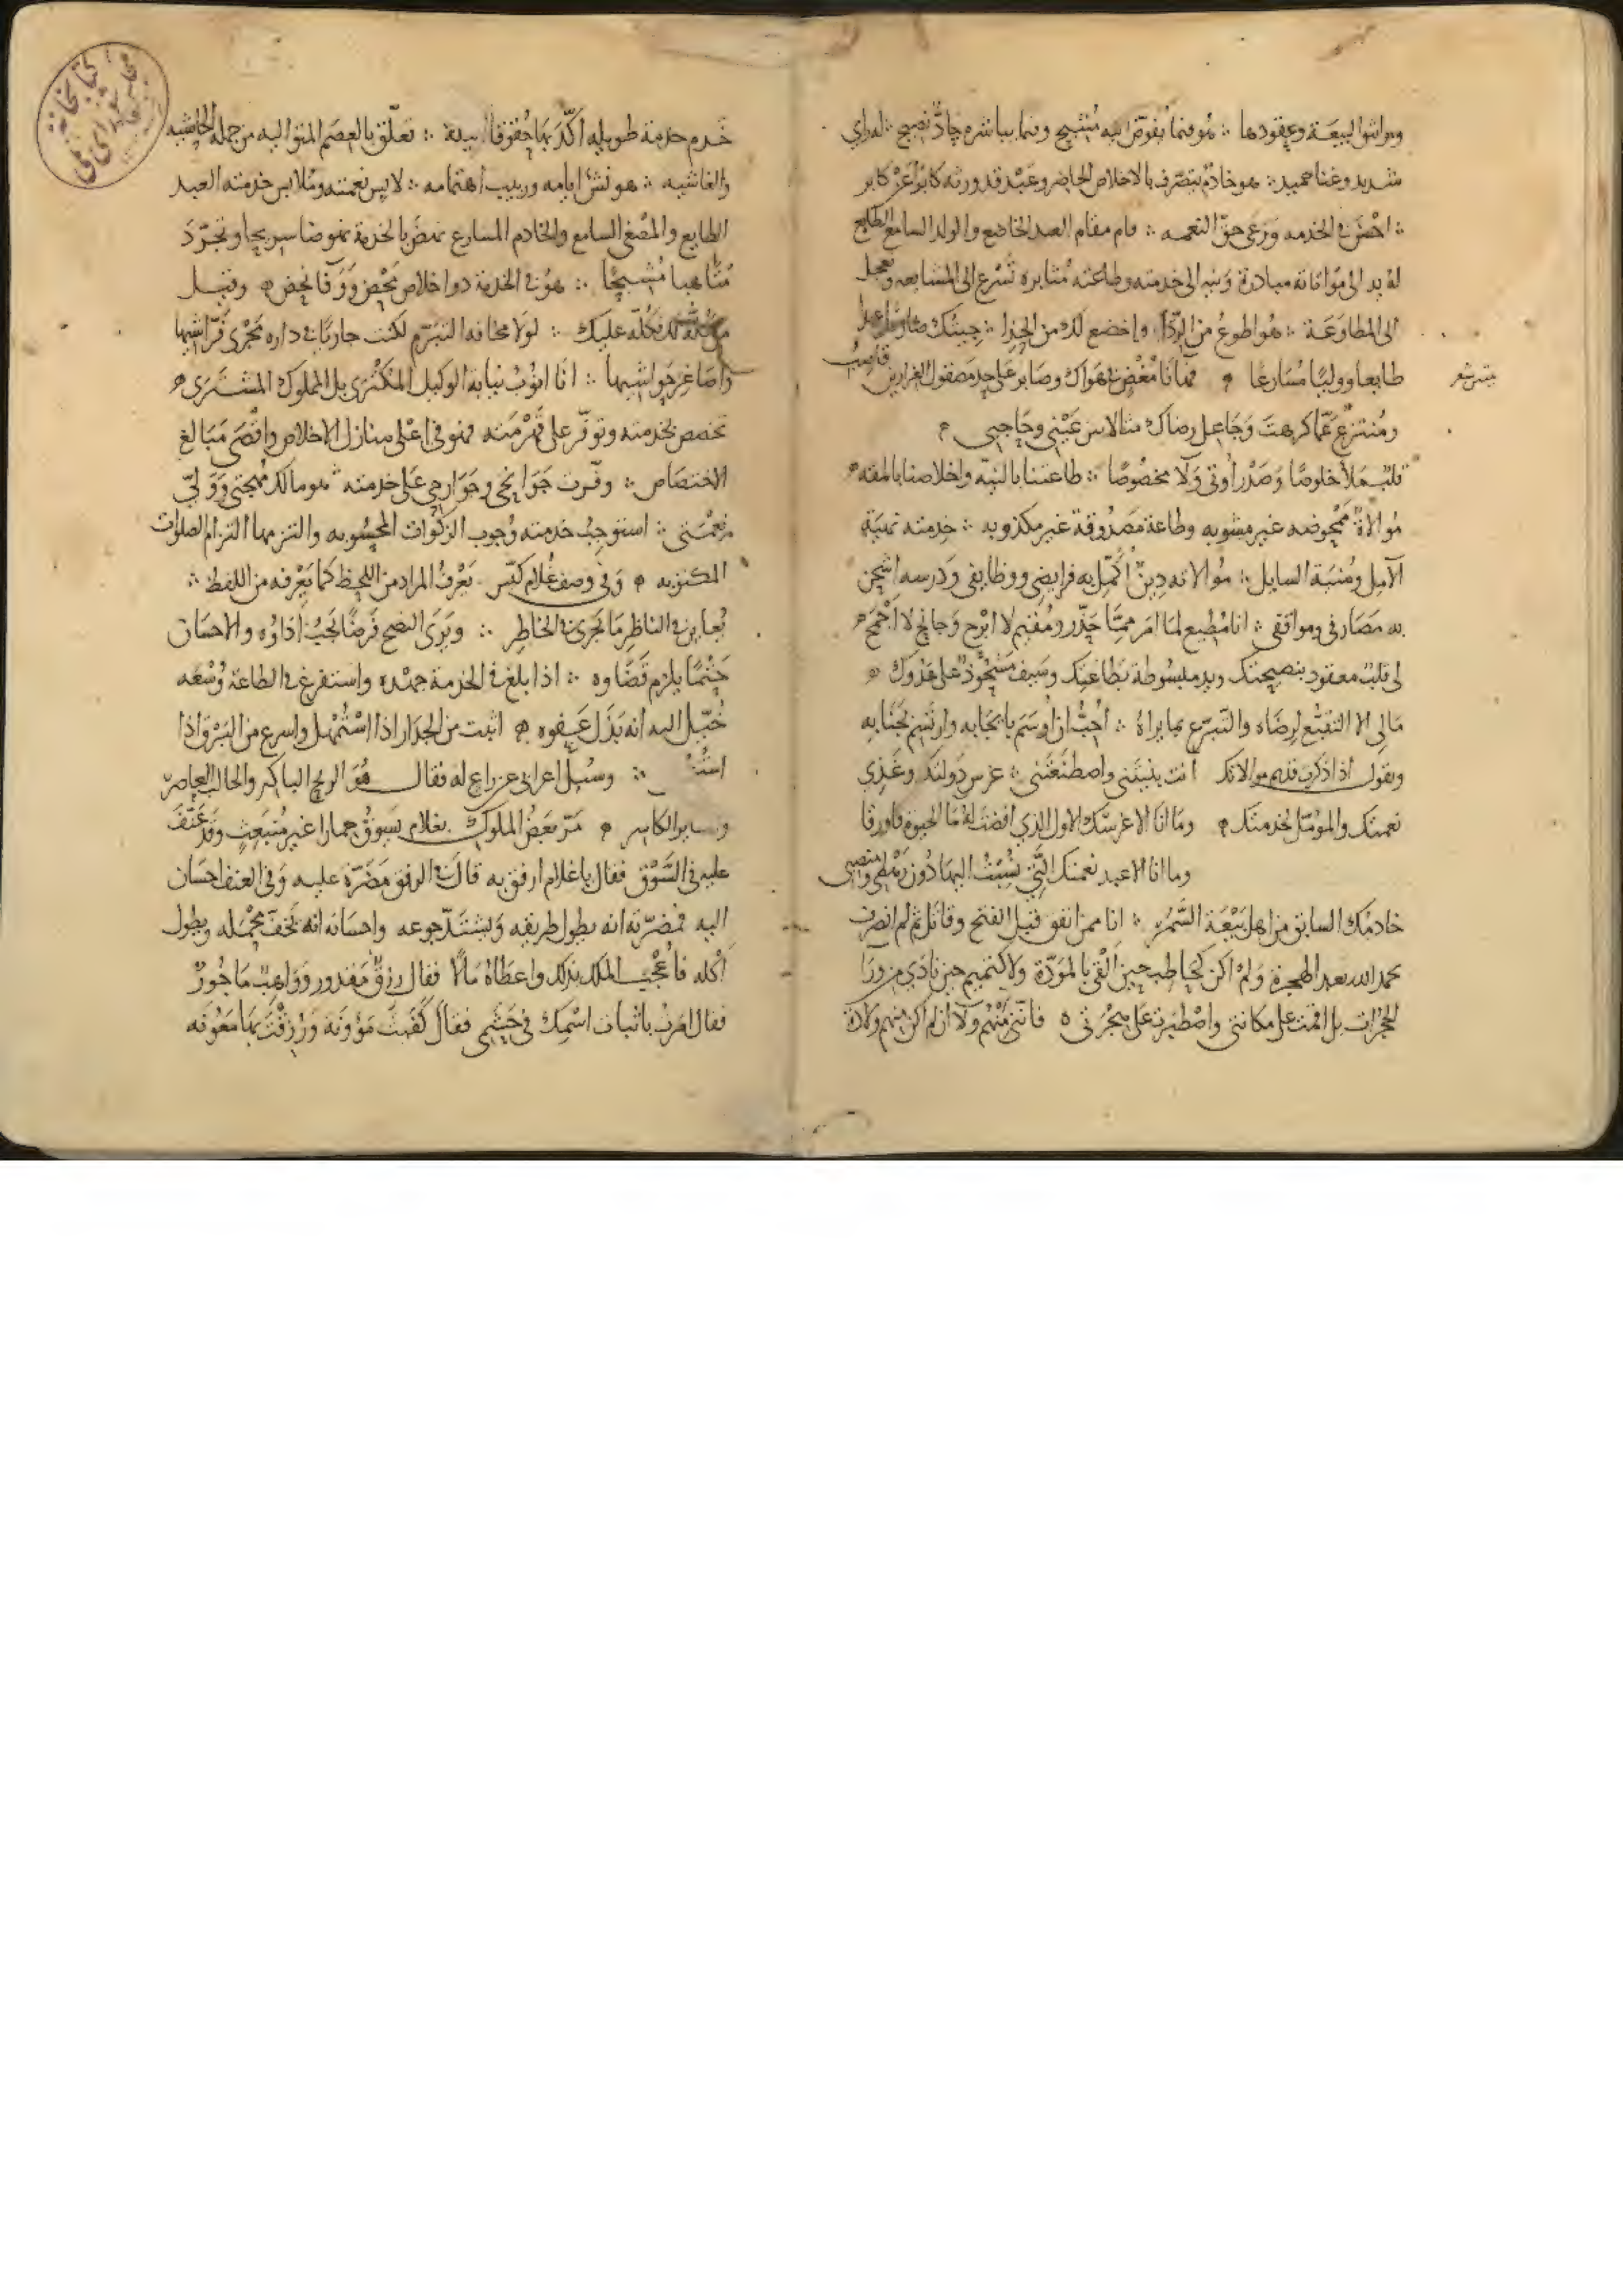 ومواثيق البيعة وعقودها ∴ هو فيما يفوض اليه مشيح وفيما يباشره جاد نصيح ∴ له راي
شديد وغنا حميد ∴ هو خادم يتصرف بالاخلاص الحاضر وعبد قد ورثه كابرا عن كابر
∴ اخلص في الخدمه ورعى حق النعمه ∴ قام مقام العبد الخاضع والولد السامع الطايع
له يد الى موافاته مبادرة ونيه الى خدمته وطاعته مثابره تسرع الى المشايعه وتعجل
الى المطاوعة ∴ هو اطوع من الردا واخضع لك من الحذا ∴ جيتك
طايعا ووليا مسارعا فها انا مغض في هواك وصابر على حد مصقول الغرارين قاضب
ومنتزع عما كرهت وجاعل رضاك مثالا بين عيني وحاجبي
قلب ملأ خلوصا وصدر اوتي ولا مخصوصا ∴ طاعتنا بالنيه واخلاصنا بالمقه
موالاة ممحوضه غير مشوبه وطاعة مصدوقة غير مكذوبه ∴ خدمته نهية
الآمل ومنية السايل ∴ موالاته دين اكمل به فرايضي ووظايفي ودرسه اشحن
به مصارفي ومواقفي ∴ انا مطيع لما امر مما حذر ومقيم لا ابرح وجانح لا اجمح
لي قلب معقود بنصيحتك ويد مبسوطة بطاعتك وسيف مشحوذ على عدوك
مالي الا التقبع لرضاه والتبرع بما يراه ∴ احب ان اوسم بانجابه وارتسم بجنابه
وتقول اذا ذكرت قديم موالاتك انت بنيتني واصطنعتني ∴ غرس دولتك وغذي
نعمتك والمومل لخدمتك وما انا الا غرسك الاول الذي افضت له ما الحيوه فاورقا
وما انا الا عبد نعمتك التي نسبت اليها دون رهطي ومنصبي
خادمك السابق من اهل بيعة الشجره ∴ انا ممن انفق قبل الفتح وقاتل ثم لم انصرف
بحمد الله بعد الهجرة ولم اكن كحاطب حين القى بالمودة ولا كتميم حين نادي من ورآ
الحجرات بل اقمت على مكانتي واصطبرت على هجرتي فانني منهم ولآ ان لم اكن منهم ولادة
خدم خدمة طويله اكد بها حقوقا تعلق بالعصم المتواليه من جملة الحاشيه
والغاشيه ∴ هو نشو ايامه وربيب اهتمامه ∴ لابس نعمته وملابس خدمته العبد
الطايع والمصغي السامع والخادم المسارع نهض بالخدمة نهوضا سريحا وتجرد
متاهبا مشيحا ∴ هو في الخدمة ذو اخلاص محض ووفا نحض وقتيل
عليك ∴ لولا مخافه التبرم لكنت جاريا في داره مجرى فراشيها
واصاغر حواشيها ∴ انا انوب نيابة الوكيل المكترى بل المملوك المشترى
تخصص بخدمته وتوفر على قهرمته فهو في اعلى منازل الاخلاص واقصى مبالغ
الاختصاص ∴ وفرت جوانحي وجوارحي على خدمته ∴ هو مالك مهجتي وولي
نعمتي ∴ استوجب خدمته وجوب الزكوات المحسوبه والتزمها التزام الصلوات
المكتوبه وفي وصف غلام كيس يعرف المراد من اللحظ كما يعرفه من اللفظ ∴
يعاين في الناظر ما يجري في الخاطر ∴ ويرى النصح فرضا يجب اداؤه والاحسان
حتما يلزم قضاوه ∴ اذا بلغ في الخدمة جهده واستفرغ في الطاعة وسعه
خيل اليه انه بذل عفوه اثبت من الجدار اذا استمهل واسرع من البرق اذا
∴ وسيل اعرابي عن راع له فقال هو الرايح الباكر والحالب العاصر
مر بعض الملوك بغلام يسوق حمارا غير منبعث وقد عنف
عليه في السوق فقال يا غلام ارفق به قال في الرفق مضرة عليه وفي العنف احسان
اليه فمضرته انه يطول طريقه ويشتد جوعه واحسانه انه تخف محمله ويطول
اكله فاعجب الملك بذلك واعطاه مالا فقال رزق مقدور وواهب ماجور
فقال امرت باثبات اسمك في حشمي فقال كفيت مؤونة ورزقت بها معونه